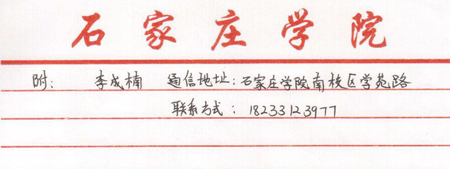 石家庄学院
附: 李成楠 通信地址:石家庄学院南校区学苑路
联系方式: 18233123977